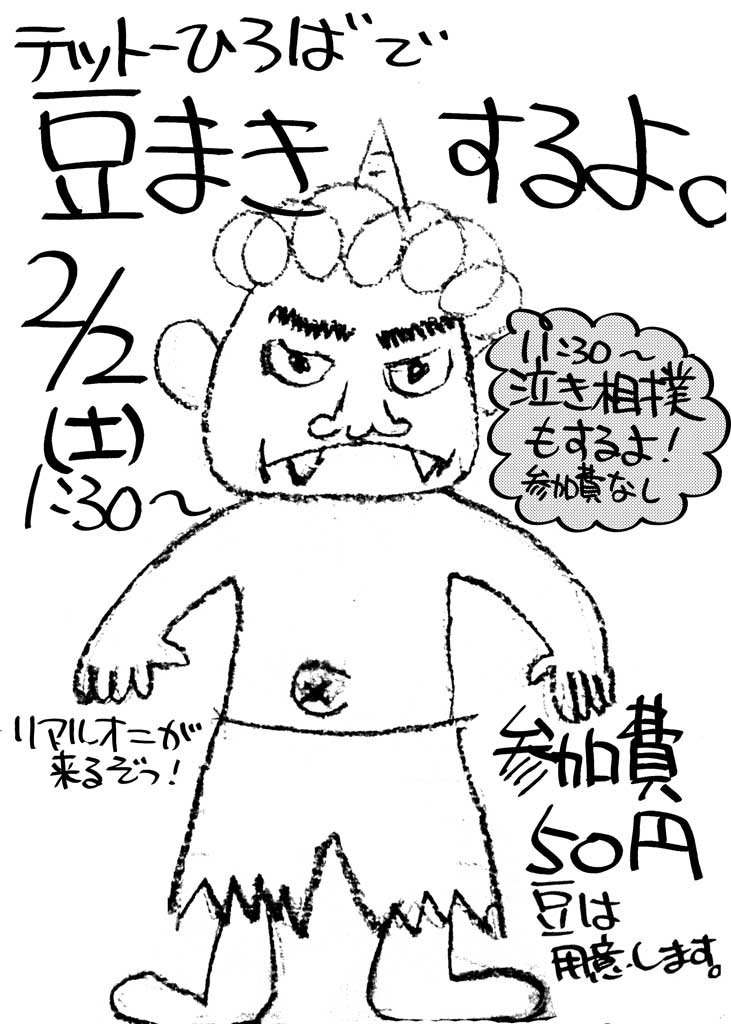 テットーひろばで
豆まきするよ。
2/2
(土)
1:30〜
11:30〜
泣き相撲
もするよ!
参加費なし
リアルオニが
来るぞっ!
参加費
50円
豆は
用意します。